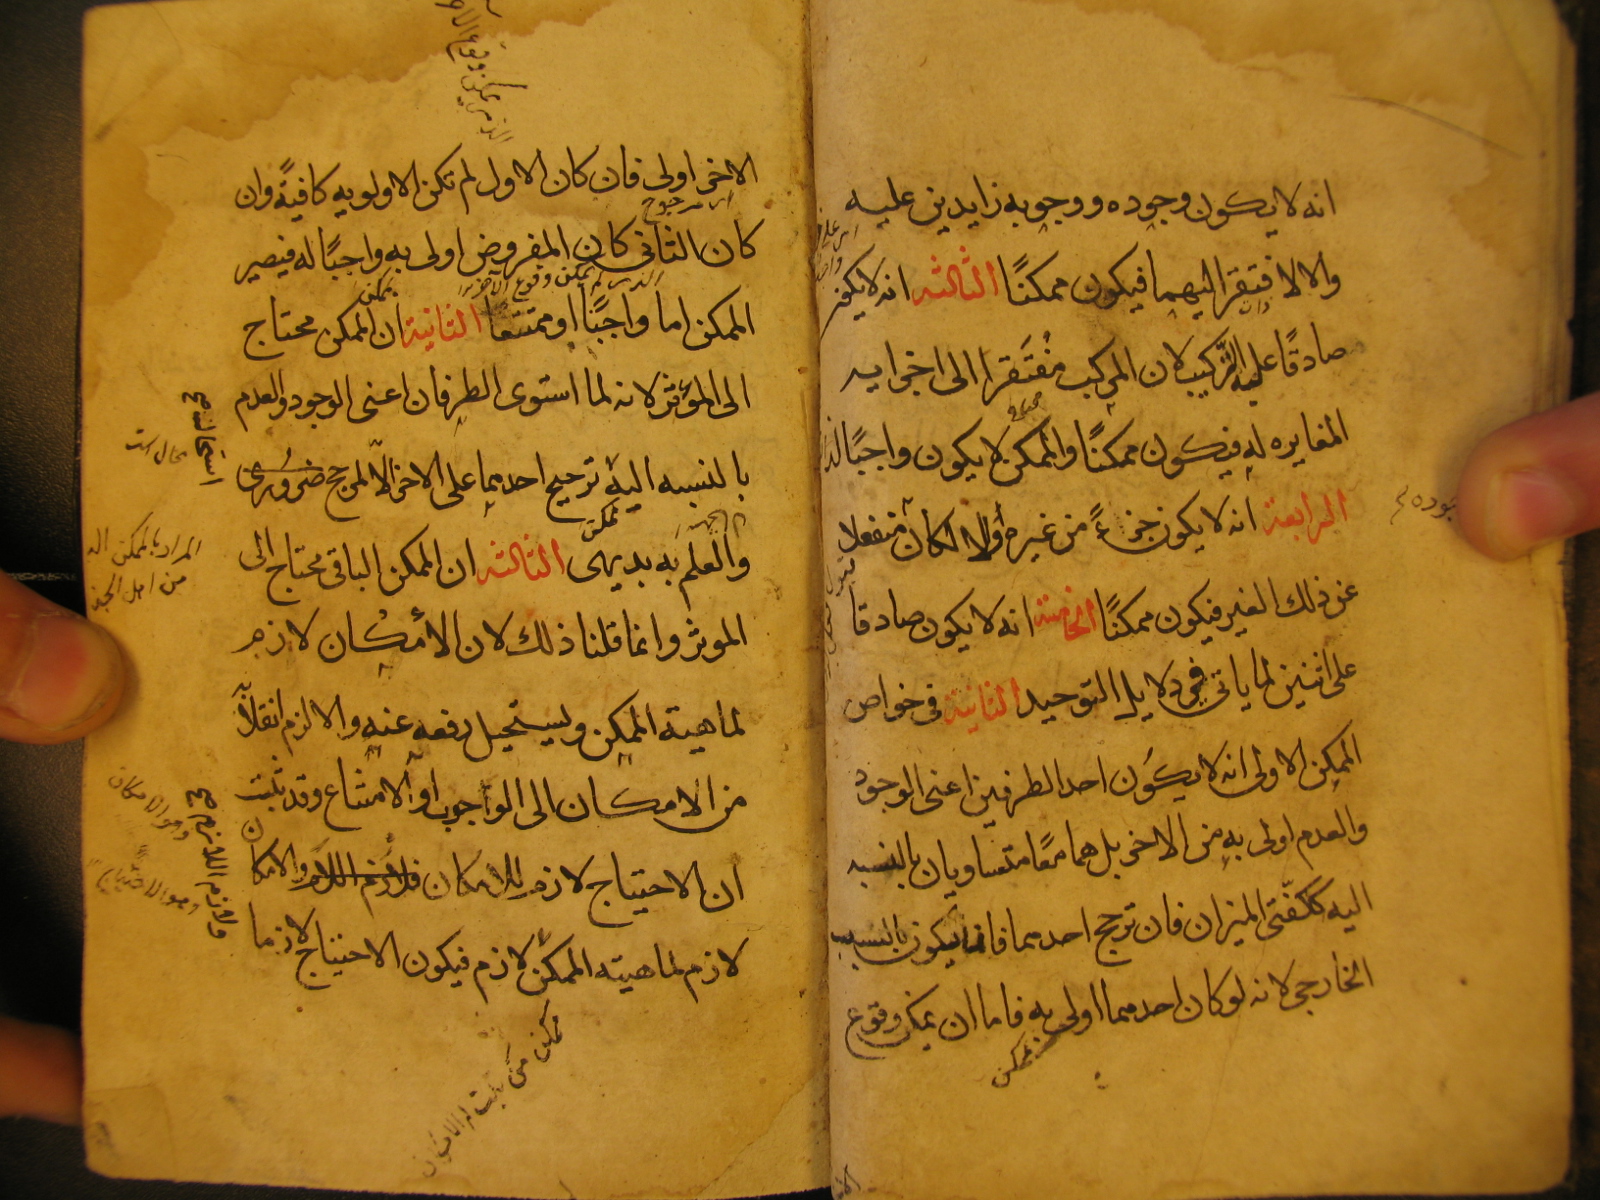 انه لا يكون وجوده ووجوبه زايدين عليه
والا لافتقر اليهما فيكون ممكنًا الثالثه انه لا يكون
صادقًا عليه التركيب لان المركب مفتقرا الى اجزايه
المغايره له فيكون ممكنًا والممكن لا يكون واجبًا لذاته
الرابعة انه لا يكون جزءً من غيره والا لكان منفعلا
عن ذلك الغير فيكون ممكنًا الخامسة انه لا يكون صادقا
على اثنين لما ياتى في دلايل التوحيد الثانية فى خواص
الممكن الاولى انه لا يكون احد الطرفين اعنى الوجود
والعدم اولى به من الاخر بل هما معًا متساويان بالنسبه
اليه ككفّتى الميزان فان ترجح احدهما فانه يكون بالسبب
الخارجى لانه لو كان احدهما اولى به فاما ان يمكن وقوع
الاخر اولى فان كان الاول لم تكن الاولويه كافيةً وان
كان الثانى كان المفروض اولى به واجبًا له فيصير
الممكن اما واجبًا او ممتنعا الثانية ان الممكن محتاج
الى المؤثر لانه لما استوى الطرفان اعنى الوجود والعدم
بالنسبه اليه ترجيح احدهما على الاخر الّا لمرجح ضرورى
والعلم به بديهى الثالثه ان الممكن الباقى محتاج الى
الموثر وانما قلنا ذلك لان الأمكان لازم
لماهية الممكن ويستحيل رفعه عنه والا لزم انقلابه
من الامكان الى الوجوب او الامتناع وقد ثبت
ان الاحتياج لازم للامكان والامكان
لازم لماهيته الممكن لازم فيكون الاحتياج لازما
استحال
محال است
المراد بالممكن
ولازم اللازم
وهو الامكان
وهو الاحتياج